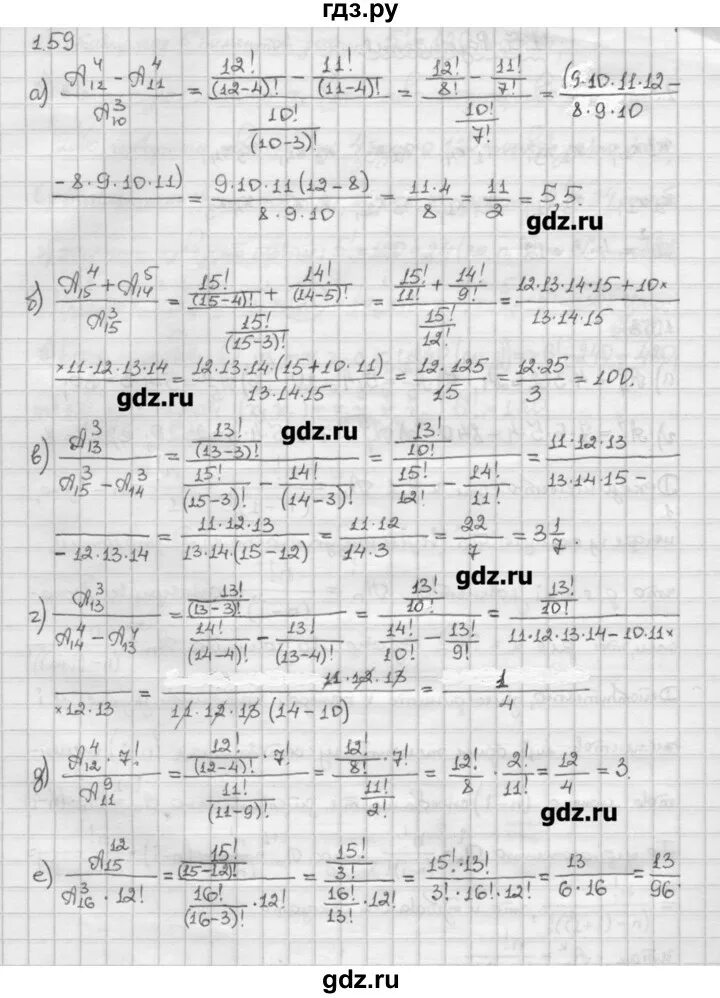 гдз.ру
159
а) (A₁₂⁴ - A₁₁⁴)/A₁₀³ = (12!/(12-4)! - 11!/(11-4)!)/(10!/(10-3)!) = (12!/8! - 11!/7!)/(10!/7!) = (9·10·11·12 -)/(8·9·10)
(-8·9·10·11) = 9·10·11(12-8)/(8·9·10) = 11·4/8 = 11/2 = 5,5.
gdz.ru
б) (A₁₅⁴ + A₁₄⁵)/A₁₅³ = (15!/(15-4)! + 14!/(14-5)!)/(15!/(15-3)!) = (15!/11! + 14!/9!)/(15!/12!) = (12·13·14·15 + 10×)/(13·14·15)
×11·12·13·14 = 12·13·14·(15+10·11)/(13·14·15) = 12·125/15 = 12·25/3 = 100.
gdz.ru
gdz.ru
в) A₁₃³/(A₁₅³ - A₁₄³) = (13!/(13-3)!)/(15!/(15-3)! - 14!/(14-3)!) = (13!/10!)/(15!/12! - 14!/11!) = 11·12·13/(13·14·15 -
-12·13·14) = 11·12·13/(13·14·(15-12)) = 11·12/(14·3) = 22/7 = 3 1/7.
gdz.ru
г) A₁₃³/(A₁₄⁴ - A₁₃⁴) = (13!/(13-3)!)/(14!/(14-4)! - 13!/(13-4)!) = (13!/10!)/(14!/10! - 13!/9!) = (13!/10!)/(11·12·13·14 - 10·11×
×12·13) = 11·12·13/(11·12·13(14-10)) = 1/4
д) A₁₂⁴·7!/A₁₁⁹ = (12!/(12-4)!·7!)/(11!/(11-9)!) = (12!/8!·7!)/(11!/2!) = 12!/8 · 2!/11! = 12/4 = 3.
gdz.ru
е) A₁₅¹²/(A₁₆³·12!) = (15!/(15-12)!)/(16!/(16-3)!·12!) = (15!/3!)/(16!/13!·12!) = 15!·13!/(3!·16!·12!) = 13/(6·16) = 13/96.
gdz.ru